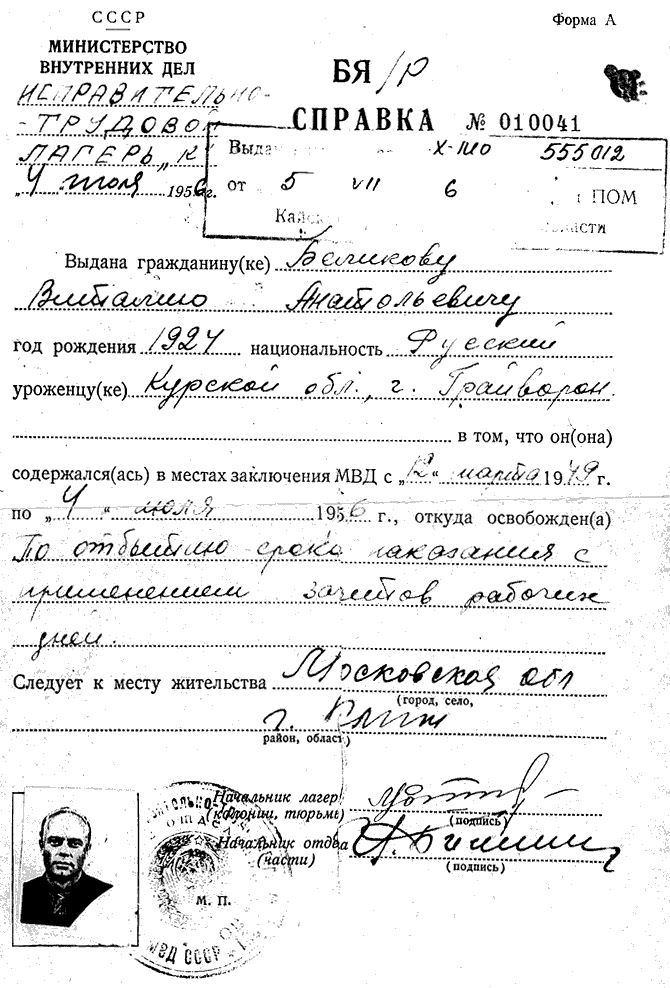 СССР
Форма А
МИНИСТЕРСТВО
ВНУТРЕННИХ ДЕЛ
ИСПРАВИТЕЛЬНО-
-ТРУДОВОЙ
ЛАГЕРЬ „К"
„4" июля 1956г.
БЯ/Р
СПРАВКА № 010041
Выдан X-МЮ 555012
от 5 VII 6 ПОМ
Кайск области
Выдана гражданину(ке) Беликову
Виталию Анатольевичу
год рождения 1924 национальность Русский
уроженцу(ке) Курской обл., г. Грайворон.
в том, что он(она)
содержался(ась) в местах заключения МВД с „12" марта 1949 г.
по „4" июля 1956 г., откуда освобожден(а)
По отбытию срока наказания с
применением зачетов рабочих
дней.
Следует к месту жительства Московская обл
(город, село,
г. Клин
район, область)
Начальник лагеря
(колонии, тюрьмы)
(подпись)
Начальник отдела
(части)
(подпись)
М. П.
МВД СССР